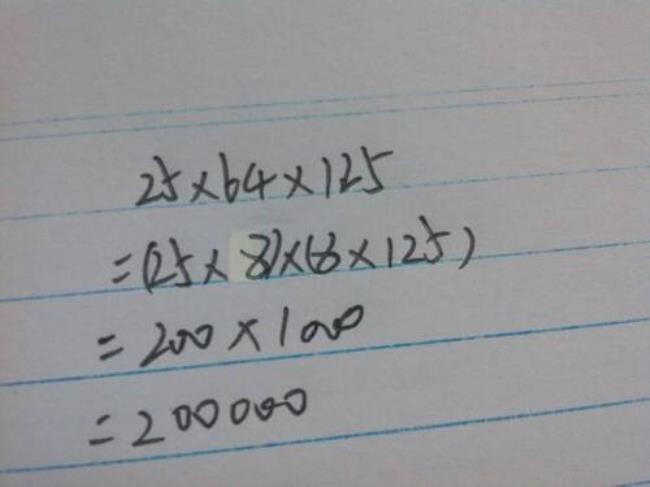 25×64×125
=(25×8)×(8×125)
=200×1000
=200000